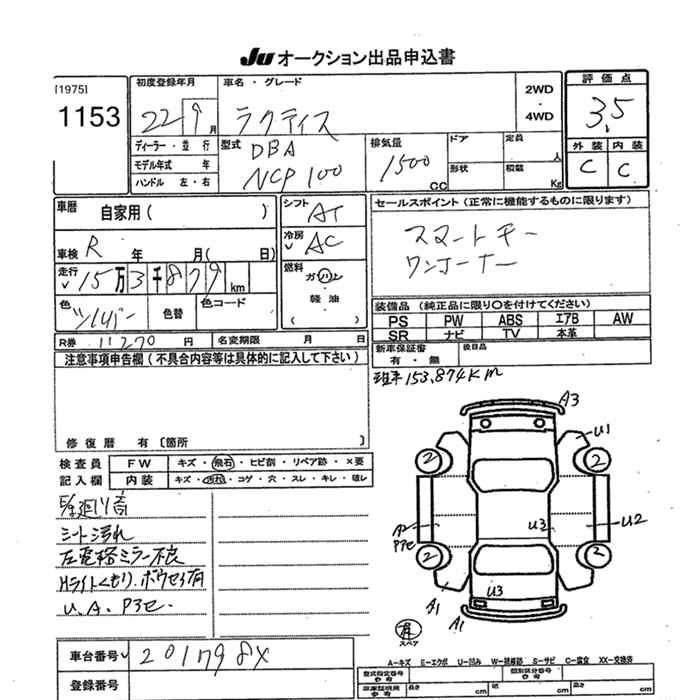 JU オークション出品申込書
[1975]
1153
初度登録年月
22 9 月
車名・グレード
ラクティス
2WD
・
4WD
評価点
3.5
ディーラー・並行
モデル年式 年
ハンドル 左・右
型式
DBA
NCP100
排気量
1500
CC
ドア
形状
定員
人
積載
Kg
外装 内装
C C
車歴
自家用( )
車検 R 年 月( 日)
走行
15万3千879km
色
シルバー
色替
色コード
シフト
AT
冷房
AC
燃料
ガソリン
・
軽油
( )
セールスポイント(正常に機能するものに限ります)
スマートキー
ワンオーナー
装備品(純正品に限り○を付けてください)
PS PW ABS エアB AW
SR ナビ TV 本革
新車保証書
有・無
後日品
R券 11270 円
名変期限 月 日
注意事項申告欄(不具合内容等は具体的に記入して下さい)
修復歴 有〔箇所 〕
153,874km
検査員
記入欄
FW キズ・飛石・ヒビ割・リペア跡・×要
内装 キズ・汚れ・コゲ・穴・スレ・キレ・破レ
シート汚れ
左電格ミラー不良
Hライトくもり.ボウセイ有
U.A.Pアセ.
A3
U1
2
2
A2
Pアセ
U3
U2
2
2
U3
A1
A1
有
スペア
車台番号 201798X
登録番号
A-キズ E-エクボ U-凹み W-補修跡 S-サビ C-腐食 XX-交換済
型式指定番号
参考
類別区分番号
参考
車庫証明用
参考
長さ cm
幅 cm
高さ cm